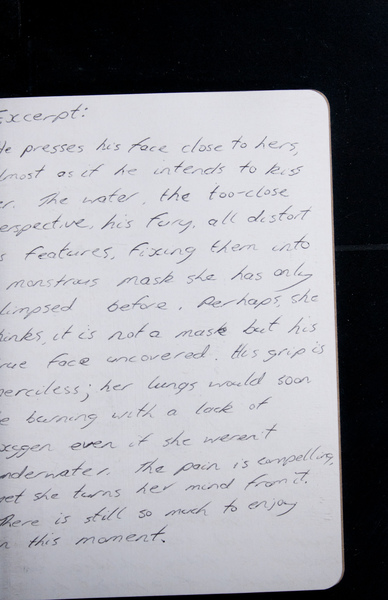 Excerpt:
He presses his face close to hers,
lmost as if he intends to kiss
er. The water, the too-close
erspective, his fury, all distort
s features, fixing them into
monstrous mask she has only
limpsed before. Perhaps, she
hinks, it is not a mask but his
rue face uncovered. His grip is
erciless; her lungs would soon
e burning with a lack of
xygen even if she weren't
nderwater. The pain is compelling,
et she turns her mind from it.
There is still so much to enjoy
n this moment.